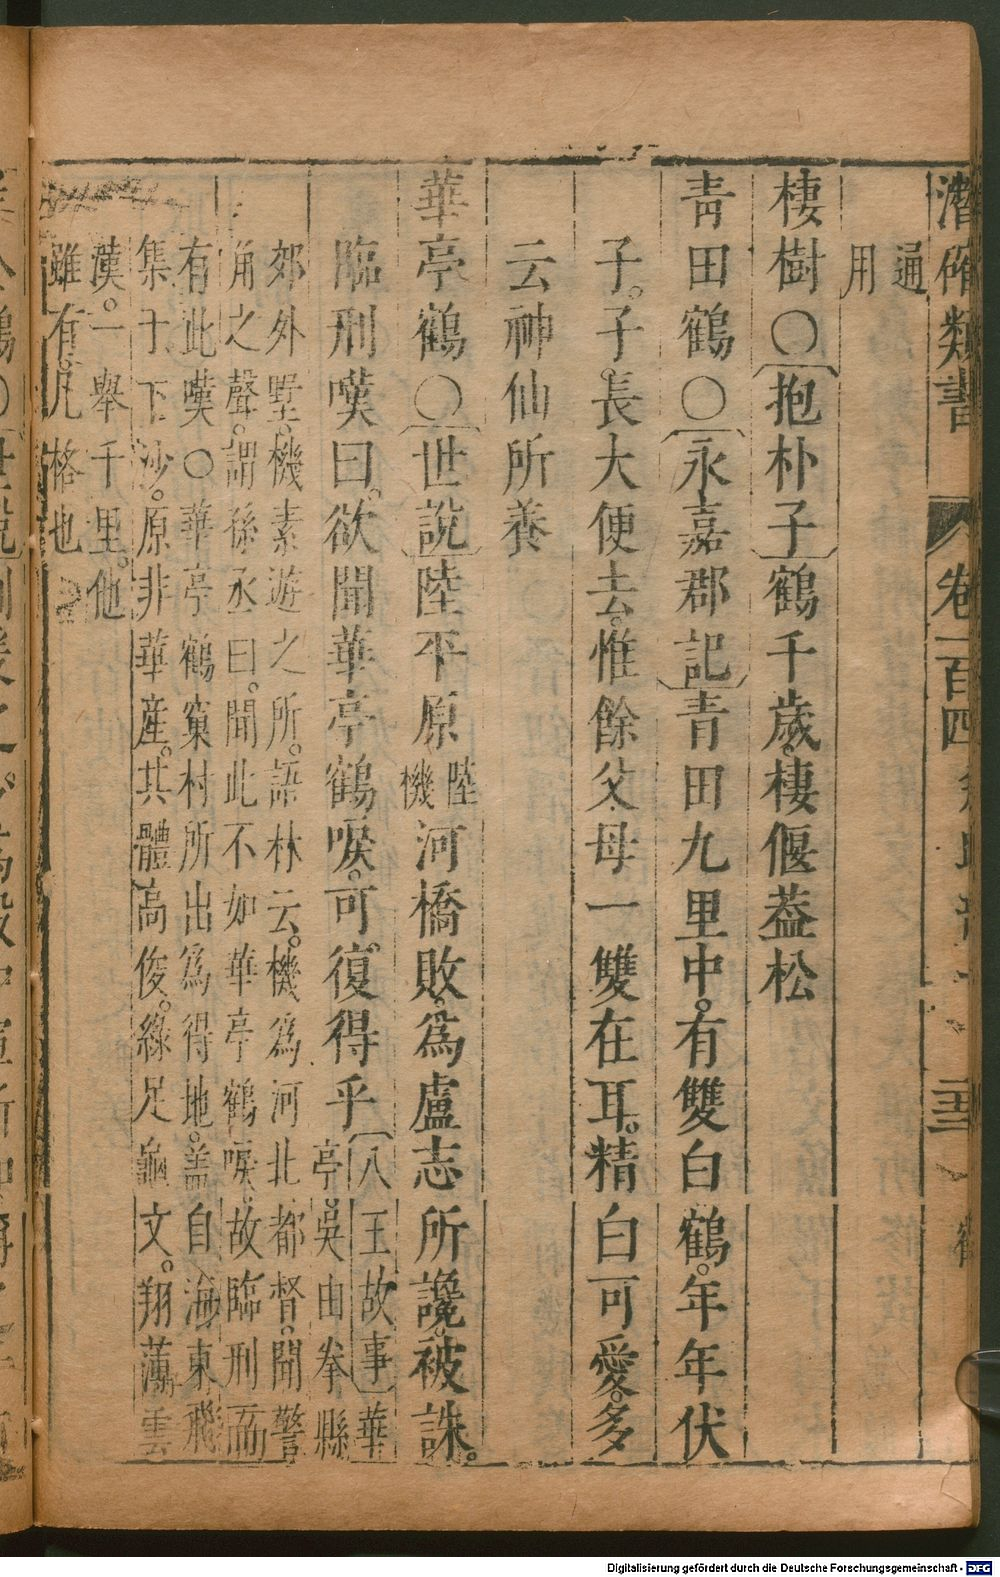 潛確類書 卷一百四
通用
棲樹〇〔抱朴子〕鶴千歲。棲偃葢松
青田鶴〇〔永嘉郡記〕青田九里中。有雙白鶴。年年伏
子。子。長大便去。惟餘父母一雙在耳。精白可愛。多
云神仙所養
華亭鶴〇〔世說〕陸平原陸機河橋敗。為盧志所讒。被誅。
臨刑嘆曰。欲聞華亭鶴唳。可。復得乎〔八王故事〕華
亭。吳由拳縣
郊外墅。機素遊之所。語林云。機為河北都督。聞警
角之聲。謂孫丞曰。聞此不如華亭鶴唳。故臨刑而
有此嘆〇華亭鶴窠村所出為得地。葢自海東飛
集于下沙。原非華產。其體高俊。綠足龜文。翔薄雲
漢。一舉千里。他
雖有。凡格也
Digitalisierung gefördert durch die Deutsche Forschungsgemeinschaft - DFG